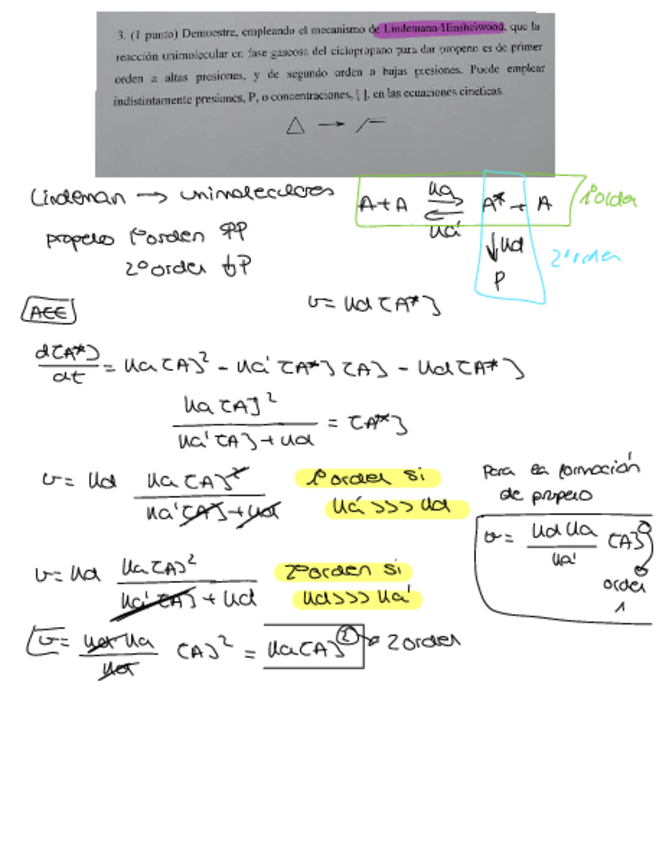 3. (1 punto) Demuestre, empleando el mecanismo de Lindemann-Hinshelwood, que la
reacción unimolecular en fase gaseosa del ciclopropano para dar propeno es de primer
orden a altas presiones, y de segundo orden a bajas presiones. Puede emplear
indistintamente presiones, P, o concentraciones, [ ], en las ecuaciones cinéticas.
Lindeman → unimoleculares
A + A ⇌ A* + A
ka
ka'
1º orden
propeno 1º orden ↑P
2º orden ↓P
↓kd
P
2º orden
AEE
v = kd [A*]
d[A*]/dt = ka [A]² - ka' [A*] [A] - kd [A*]
ka [A]² / (ka' [A] + kd) = [A*]
v = kd ka [A]² / (ka' [A] + kd)
1º orden si
ka' >>> kd
Para la formación
de propeno
v = kd ka / ka' [A]
orden
1
v = kd ka [A]² / (ka' [A] + kd)
2º orden si
kd >>> ka'
v = kd ka / kd [A]² = ka [A]² → 2 orden